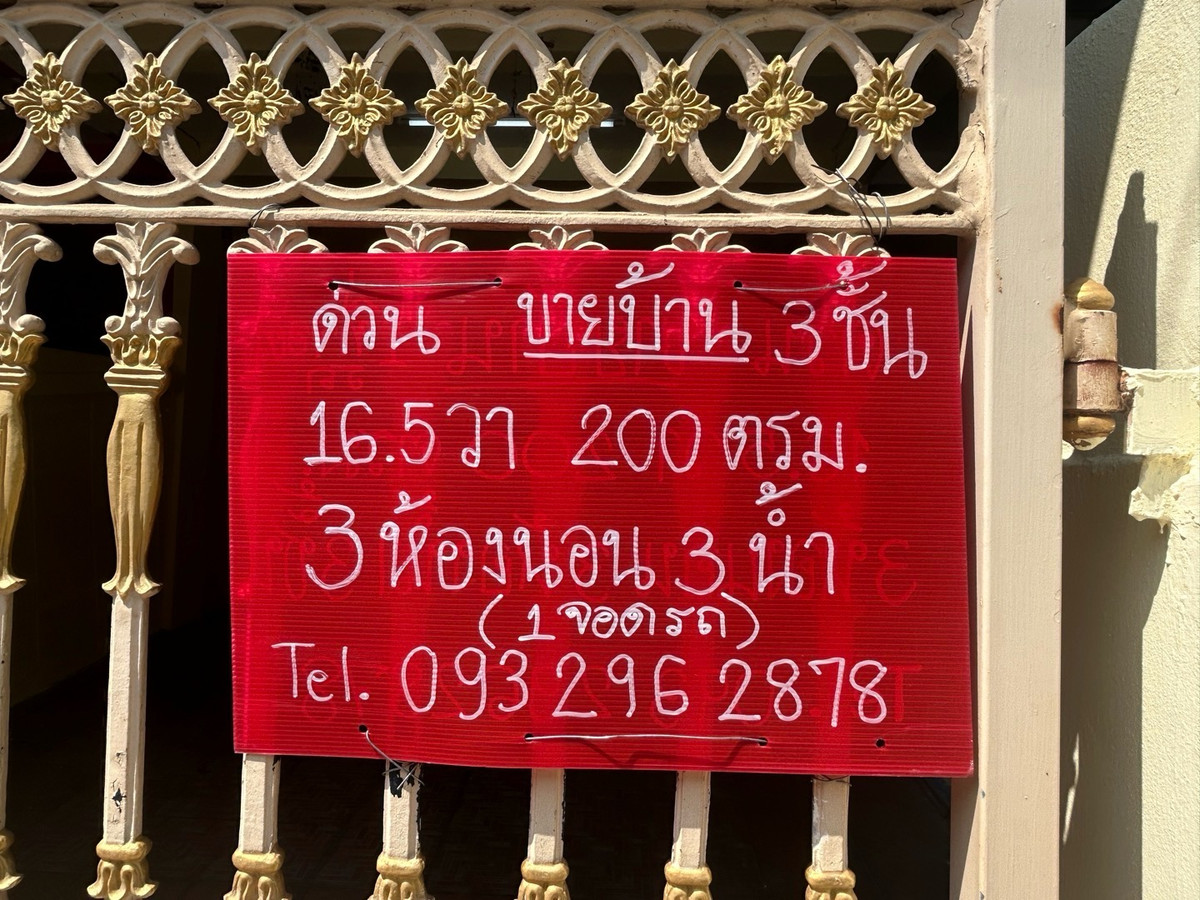 ด่วน ขายบ้าน 3 ชั้น
16.5 วา 200 ตรม.
3 ห้องนอน 3 น้ำ
(1 จอดรถ)
Tel. 093 296 2878